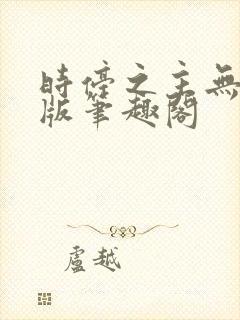 時停之主無
版筆趣閣
盧越